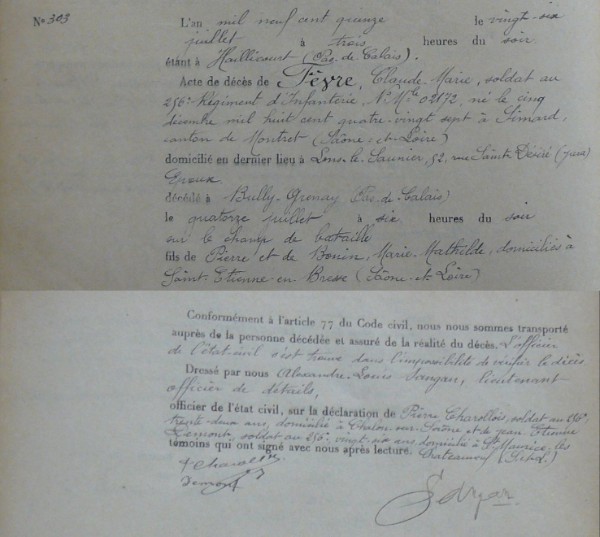 No 303
L'an mil neuf cent quinze le vingt-six
juillet à trois heures du soir
étant à Haillicourt (Pas-de-Calais).
Acte de décès de Fèvre, Claude-Marie, soldat au
256e Régiment d'Infanterie, N. Mle 02172, né le cinq
décembre mil huit cent quatre-vingt sept à Simard,
canton de Montret (Saône-et-Loire)
domicilié en dernier lieu à Lons-le-Saunier, 52, rue Saint-Désiré (Jura)
Epoux
décédé à Bully-Grenay (Pas-de-Calais)
le quatorze juillet à six heures du soir
sur le champ de bataille
fils de Pierre et de Bonin, Marie-Mathilde, domiciliés à
Saint-Etienne-en-Bresse (Saône-et-Loire)
Conformément à l'article 77 du Code civil, nous nous sommes transporté
auprès de la personne décédée et assuré de la réalité du décès. L'officier
de l'état-civil s'est trouvé dans l'impossibilité de vérifier le décès
Dressé par nous Alexandre-Louis lieutenant
officier de détails,
officier de l'état civil, sur la déclaration de Pierre Charollois, soldat au 256e,
trente-deux ans, domicilié à Chalon-sur-Saône et de Jean Etienne
Demont, soldat au 256e, vingt-six ans domicilié à St Maurice-les
témoins qui ont signé avec nous après lecture. Chateauneuf (S.et.L.)
Demont